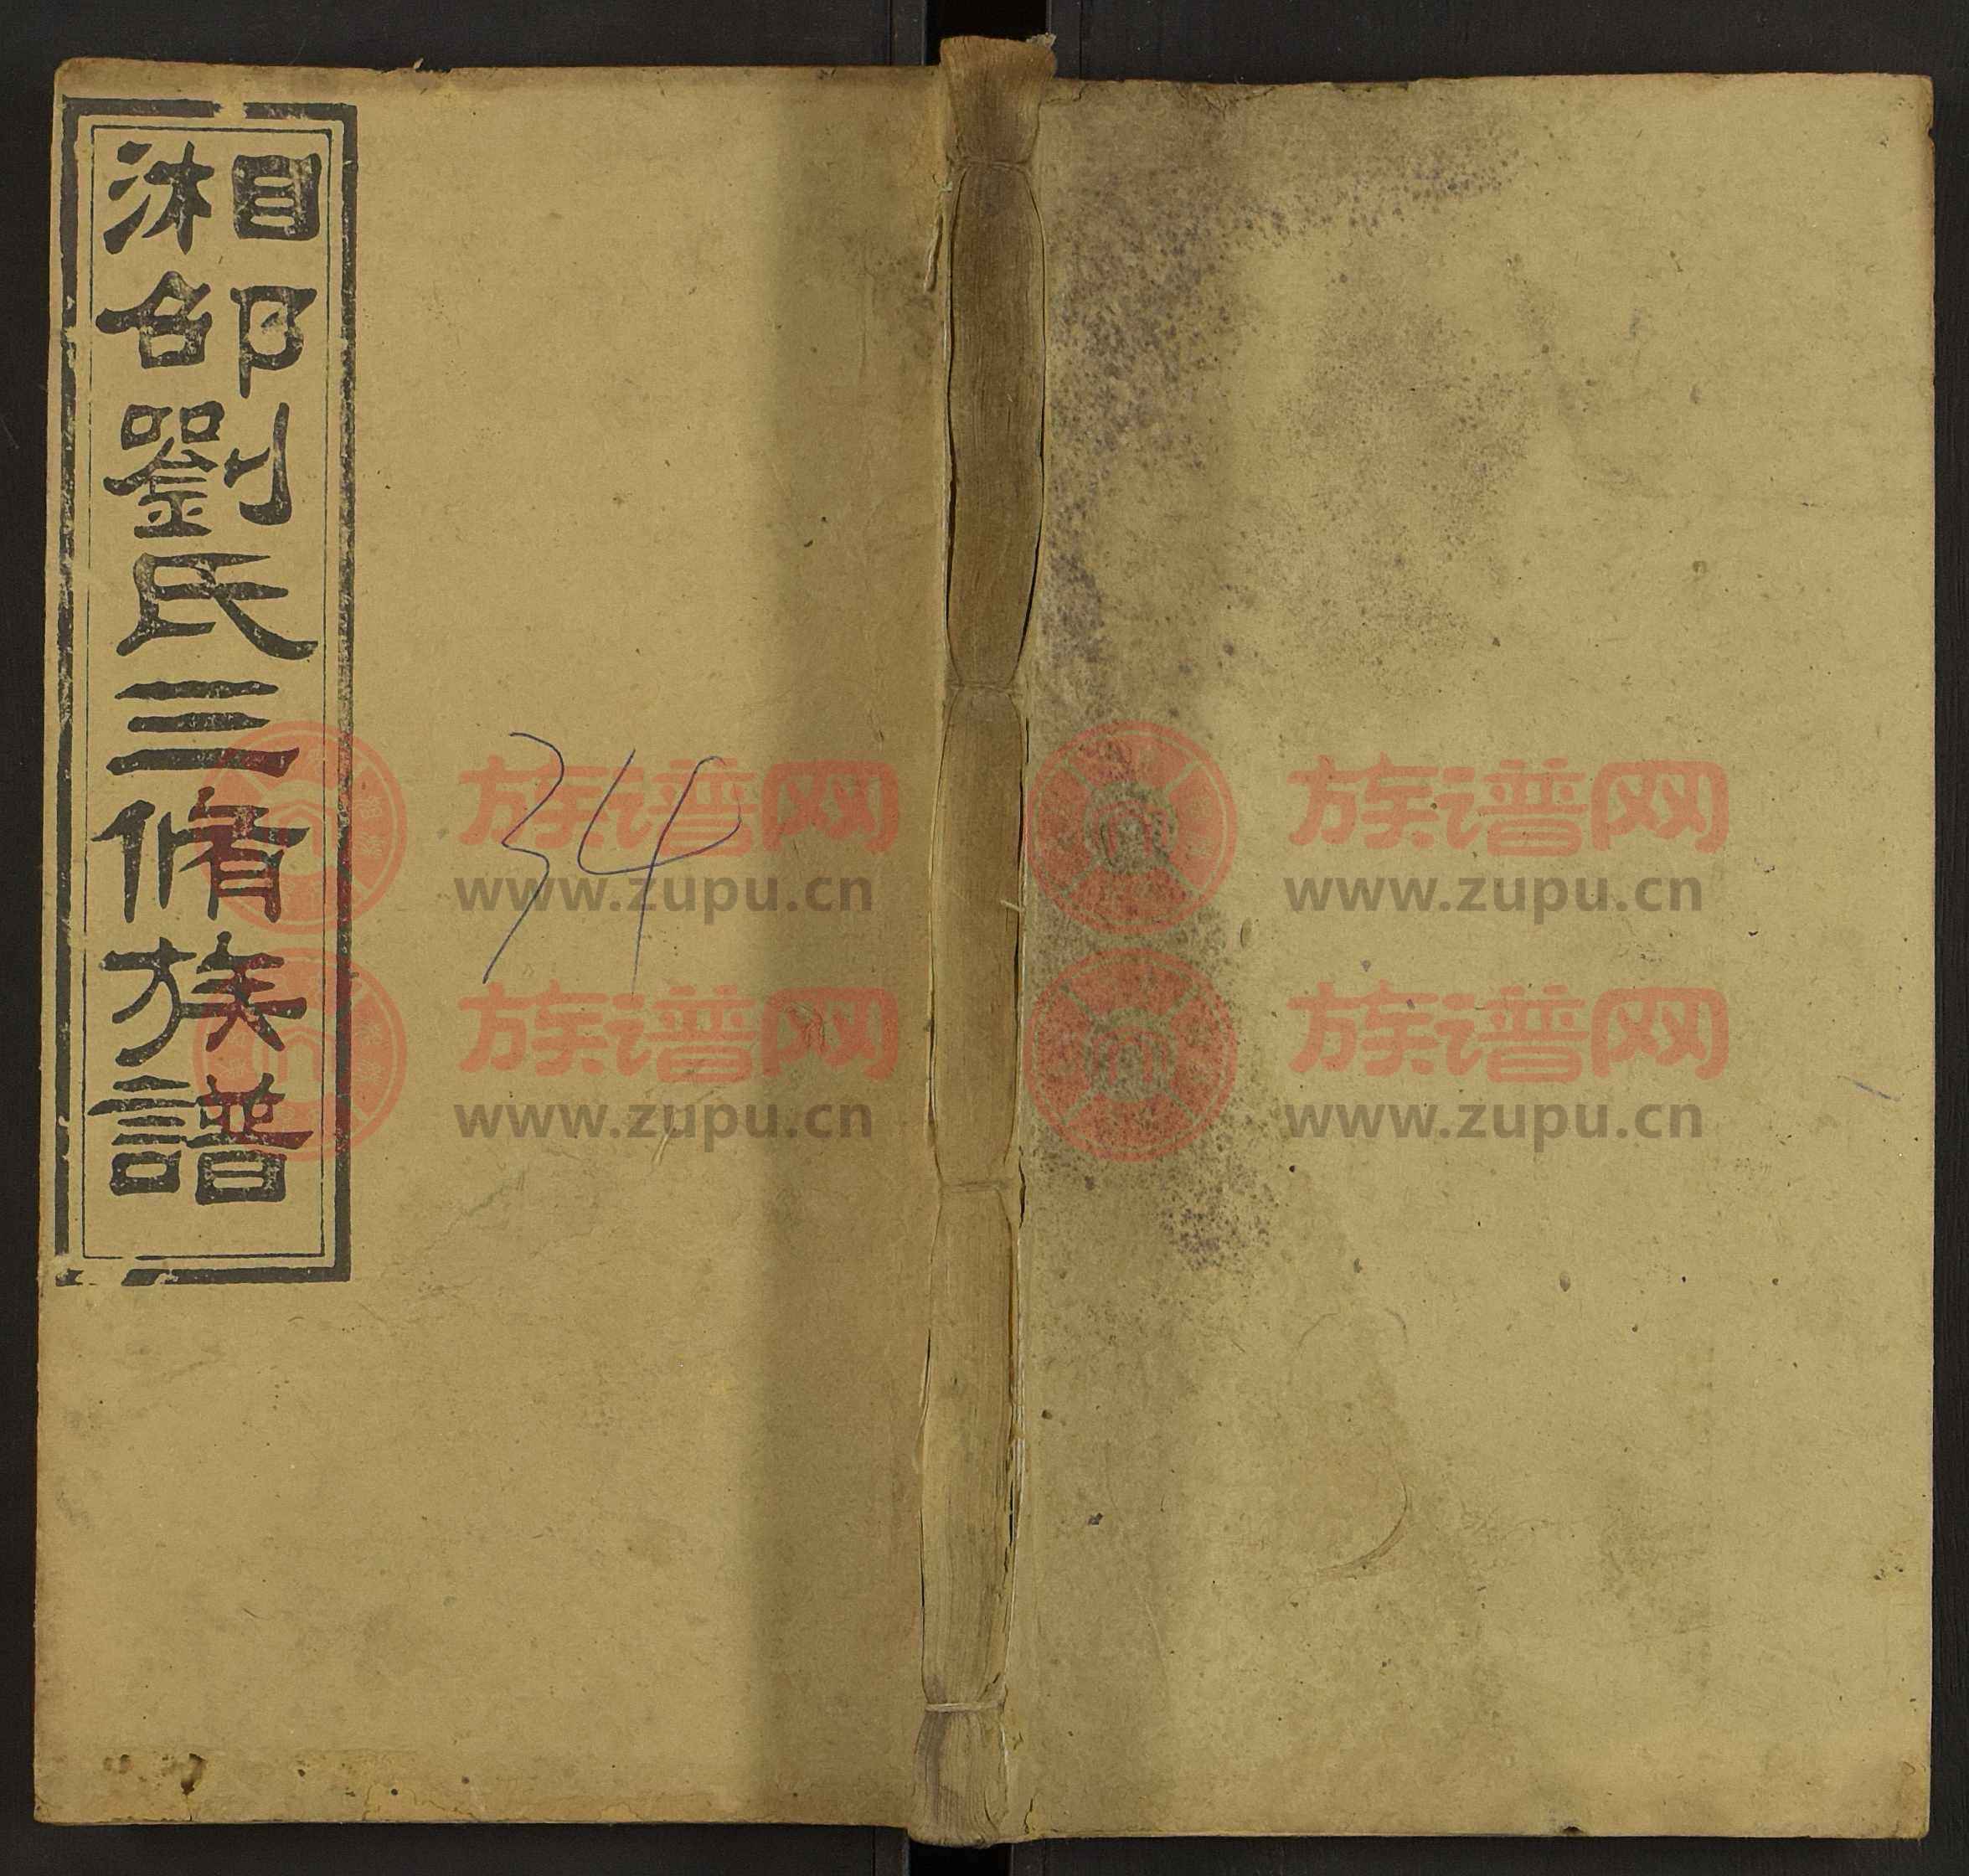 湘邵劉氏三脩族譜
34
族谱网
www.zupu.cn
族谱网
www.zupu.cn
族谱网
www.zupu.cn
族谱网
www.zupu.cn